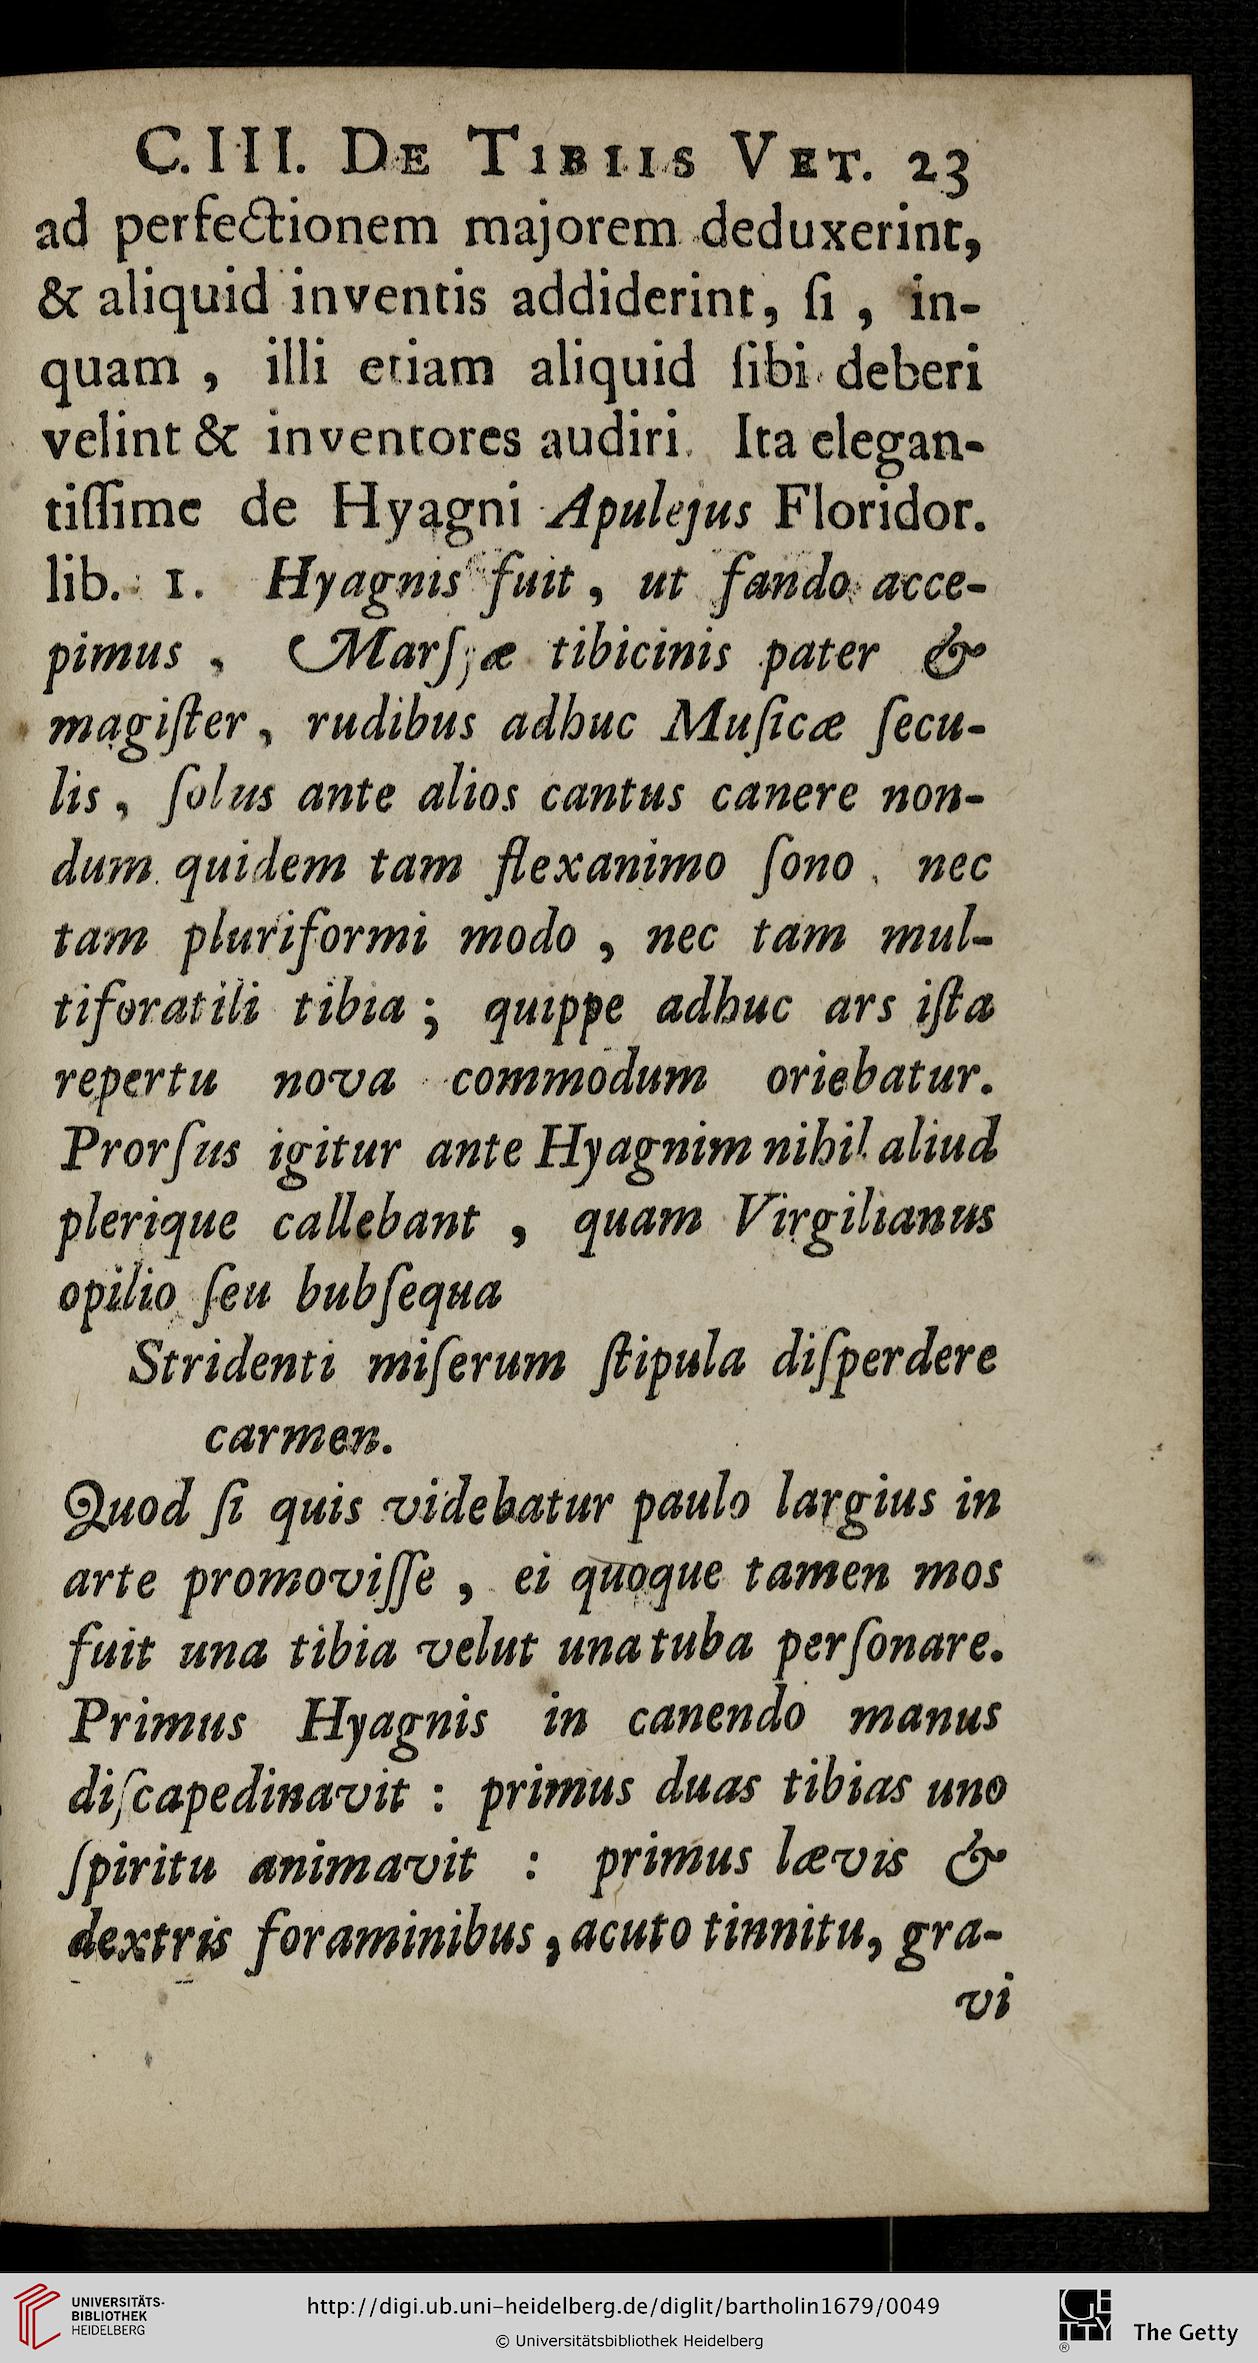 C. III. DE TIBIIS VET. 23
ad perfectionem majorem deduxerint,
& aliquid inventis addiderint, ſi, in-
quam, illi etiam aliquid ſibi deberi
velint & inventores audiri. Ita elegan-
tiſſime de Hyagni Apulejus Floridor.
lib. 1. Hyagnis fuit, ut fando acce-
pimus, Marſyæ tibicinis pater &
magiſter, rudibus adhuc Muſicæ ſecu-
lis, ſolus ante alios cantus canere non-
dum quidem tam flexanimo ſono, nec
tam pluriformi modo, nec tam mul-
tiforatili tibia; quippe adhuc ars iſta
repertu nova commodum oriebatur.
Prorſus igitur ante Hyagnim nihil aliud
plerique callebant, quam Virgilianus
opilio ſeu bubſequa
Stridenti miſerum ſtipula diſperdere
carmen.
Quod ſi quis videbatur paulo largius in
arte promoviſſe, ei quoque tamen mos
fuit una tibia velut una tuba perſonare.
Primus Hyagnis in canendo manus
diſcapedinavit: primus duas tibias uno
ſpiritu animavit: primus lævis &
dextris foraminibus, acuto tinnitu, gra-
vi
UNIVERSITÄTS-
BIBLIOTHEK
HEIDELBERG
http://digi.ub.uni-heidelberg.de/diglit/bartholin1679/0049
© Universitätsbibliothek Heidelberg
GETTY
The Getty